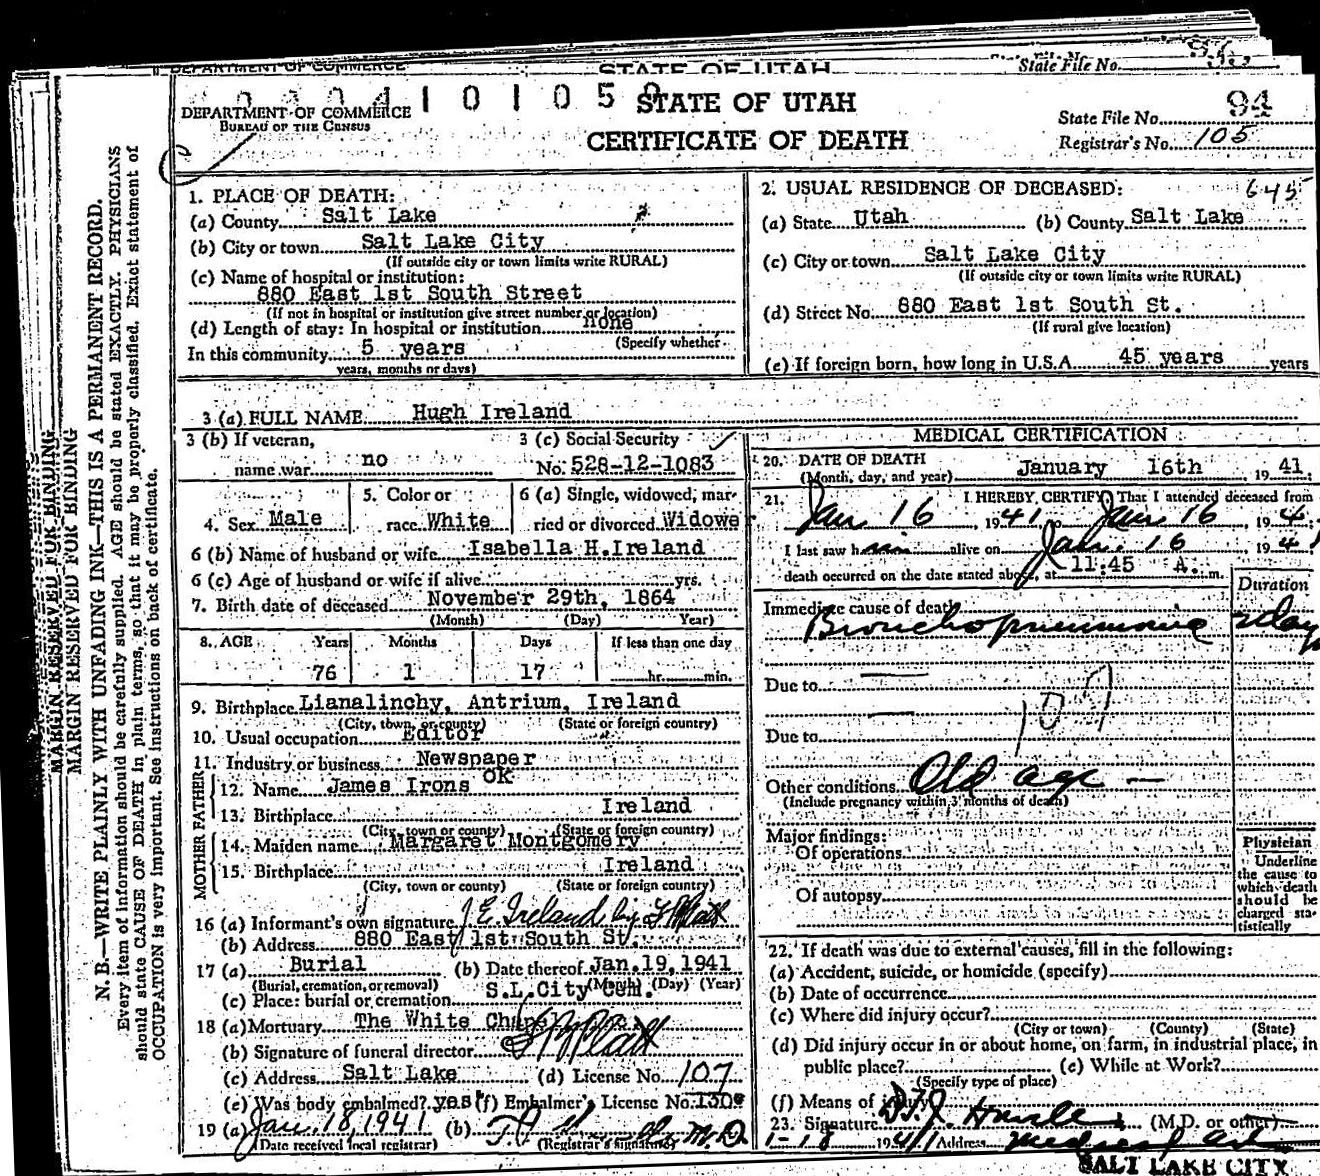 DEPARTMENT OF COMMERCE
STATE OF UTAH
State File No.
1 0 1 0 5
DEPARTMENT OF COMMERCE
BUREAU OF THE CENSUS
STATE OF UTAH
CERTIFICATE OF DEATH
State File No. 94
Registrar's No. 105
645
MARGIN RESERVED FOR BINDING
MARGIN RESERVED FOR BINDING
N. B.—WRITE PLAINLY WITH UNFADING INK—THIS IS A PERMANENT RECORD.
Every item of information should be carefully supplied. AGE should be stated EXACTLY. PHYSICIANS
should state CAUSE OF DEATH in plain terms, so that it may be properly classified. Exact statement of
OCCUPATION is very important. See instructions on back of certificate.
1. PLACE OF DEATH:
(a) County Salt Lake
(b) City or town Salt Lake City
(If outside city or town limits write RURAL)
(c) Name of hospital or institution:
880 East 1st South Street
(If not in hospital or institution give street number or location)
(d) Length of stay: In hospital or institution none
(Specify whether
In this community 5 years
years, months or days)
2. USUAL RESIDENCE OF DECEASED:
(a) State Utah (b) County Salt Lake
(c) City or town Salt Lake City
(If outside city or town limits write RURAL)
(d) Street No. 880 East 1st South St.
(If rural give location)
(e) If foreign born, how long in U.S.A. 45 years years
3 (a) FULL NAME Hugh Ireland
3 (b) If veteran,
name war no
3 (c) Social Security
No. 528-12-1083
4. Sex Male
5. Color or
race White
6 (a) Single, widowed, mar-
ried or divorced Widowe
6 (b) Name of husband or wife Isabella H.Ireland
6 (c) Age of husband or wife if alive yrs.
7. Birth date of deceased November 29th, 1864
(Month) (Day) Year)
8. AGE Years Months Days If less than one day
76 1 17 hr. min.
9. Birthplace Lianalinchy, Antrium, Ireland
(City, town, or county) (State or foreign country)
10. Usual occupation Editor
11. Industry or business Newspaper
FATHER
12. Name James Irons OK
13. Birthplace Ireland
(City, town or county) (State or foreign country)
MOTHER
14. Maiden name Margaret Montgomery
15. Birthplace Ireland
(City, town or county) (State or foreign country)
16 (a) Informant's own signature J E Ireland by
(b) Address 880 East 1st South St.
17 (a) Burial (b) Date thereof Jan.19,1941
(Burial, cremation, or removal) (Month) (Day) (Year)
(c) Place: burial or cremation S.L.City Cem.
18 (a) Mortuary The White Chapel
(b) Signature of funeral director
(c) Address Salt Lake (d) License No. 107
(e) Was body embalmed? yes (f) Embalmer's License No. 130
19 (a) Jan. 18, 1941 (b) M.D
(Date received local registrar) (Registrar's signature)
MEDICAL CERTIFICATION
20. DATE OF DEATH
(Month, day, and year) January 16th, 1941.
21. I HEREBY CERTIFY, That I attended deceased from
Jan 16, 1941 to Jan 16, 194
I last saw him alive on Jan. 16, 194
death occurred on the date stated above, at 11:45 A. m.
Duration
Immediate cause of death
Bronchopneumonia 2 day
Due to
107
Due to
Other conditions Old age
(Include pregnancy within 3 months of death)
Major findings:
Of operations
Of autopsy
Physician
Underline
the cause to
which death
should be
charged sta-
tistically
22. If death was due to external causes, fill in the following:
(a) Accident, suicide, or homicide (specify)
(b) Date of occurrence
(c) Where did injury occur?
(City or town) (County) (State)
(d) Did injury occur in or about home, on farm, in industrial place, in
public place? (e) While at Work?
(Specify type of place)
(f) Means of injury
23. Signature (M.D. or other)
1-18 1941 Address Medical Art
SALT LAKE CITY